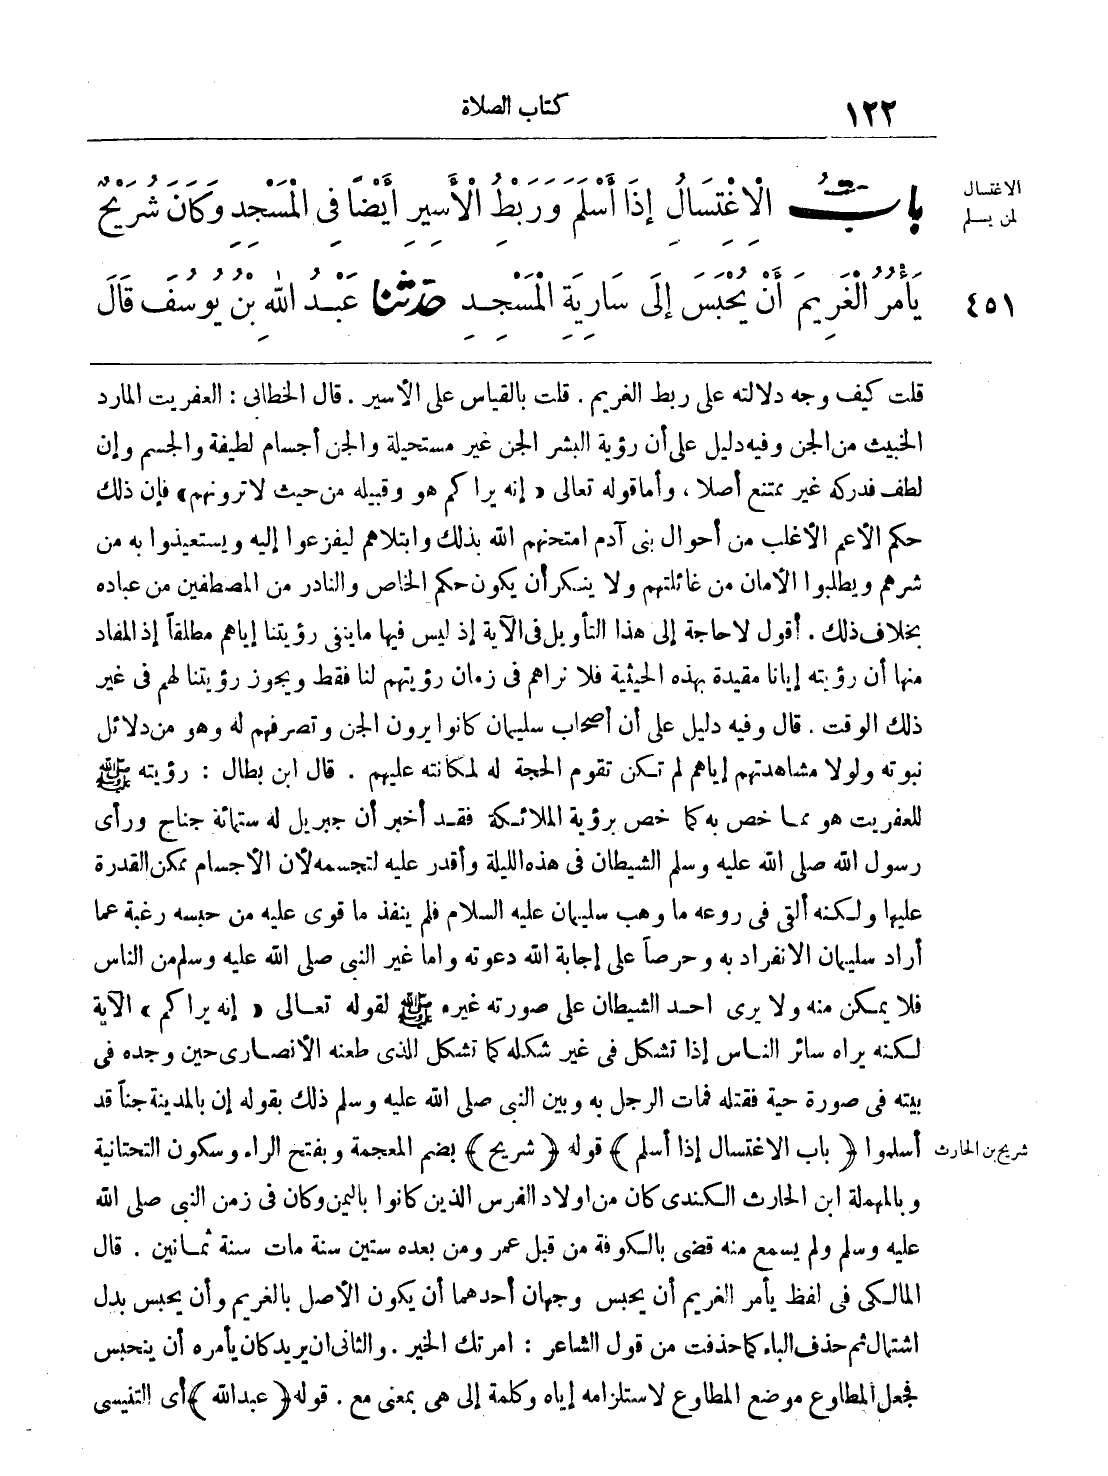 ١٢٢
كتاب الصلاة
الاغتسال
لمن يسلم
بابُ الْاِغْتِسَالِ إِذَا أَسْلَمَ وَرَبْطُ الْأَسِيرِ أَيْضًا فِى الْمَسْجِدِ وَكَانَ شُرَيْحٌ
٤٥١
يَأْمُرُ الْغَرِيمَ أَنْ يُحْبَسَ إِلَى سَارِيَةِ الْمَسْجِدِ حَدَّثَنَا عَبْدُ اللهِ بْنُ يُوسُفَ قَالَ
قلت كيف وجه دلالته على ربط الغريم . قلت بالقياس على الأسير . قال الخطابى : العفريت المارد
الخبيث من الجن وفيه دليل على أن رؤية البشر الجن غير مستحيلة والجن أجسام لطيفة والجسم وإن
لطف فدركه غير ممتنع أصلا ، وأما قوله تعالى « إنه يراكم هو وقبيله من حيث لا ترونهم » فإن ذلك
حكم الأعم الأغلب من أحوال بنى آدم امتحنهم الله بذلك وابتلاهم ليفزعوا إليه ويستعيذوا به من
شرهم ويطلبوا الأمان من غائلتهم ولا ينكر أن يكون حكم الخاص والنادر من المصطفين من عباده
بخلاف ذلك . أقول لا حاجة إلى هذا التأويل فى الآية إذ ليس فيها ما ينفى رؤيتنا إياهم مطلقاً إذ المفاد
منها أن رؤيته إيانا مقيدة بهذه الحيثية فلا نراهم فى زمان رؤيتهم لنا فقط ويجوز رؤيتنا لهم فى غير
ذلك الوقت . قال وفيه دليل على أن أصحاب سليمان كانوا يرون الجن وتصرفهم له وهو من دلائل
نبوته ولولا مشاهدتهم إياهم لم تكن تقوم الحجة له لمكانته عليهم . قال ابن بطال : رؤيته ﷺ
للعفريت هو مما خص به كما خص برؤية الملائكة فقد أخبر أن جبريل له ستمائة جناح ورأى
رسول الله صلى الله عليه وسلم الشيطان فى هذه الليلة وأقدر عليه لتجسمه لأن الأجسام ممكن القدرة
عليها ولكنه ألقى فى روعه ما وهب سليمان عليه السلام فلم ينفذ ما قوى عليه من حبسه رغبة عما
أراد سليمان الانفراد به وحرصاً على إجابة الله دعوته واما غير النبى صلى الله عليه وسلم من الناس
فلا يمكن منه ولا يرى احد الشيطان على صورته غيره ﷺ لقوله تعالى « إنه يراكم » الآية
لكنه يراه سائر الناس إذا تشكل فى غير شكله كما تشكل للذى طعنه الأنصارى حين وجده فى
بيته فى صورة حية فقتله فمات الرجل به وبين النبى صلى الله عليه وسلم ذلك بقوله إن بالمدينة جناً قد
شريح بن الحارث
أسلموا ﴿ باب الاغتسال إذا أسلم ﴾ قوله ﴿ شريح ﴾ بضم المعجمة وبفتح الراء وسكون التحتانية
وبالمهملة ابن الحارث الكندى كان من اولاد الفرس الذين كانوا باليمن وكان فى زمن النبى صلى الله
عليه وسلم ولم يسمع منه قضى بالكوفة من قبل عمر ومن بعده ستين سنة مات سنة ثمانين . قال
المالكى فى لفظ يأمر الغريم أن يحبس وجهان أحدهما أن يكون الأصل بالغريم وأن يحبس بدل
اشتمال ثم حذف الباء كما حذفت من قول الشاعر : امرتك الخير . والثانى ان يريد كان يأمره أن ينحبس
فجعل المطاوع موضع المطاوع لاستلزامه إياه وكلمة إلى هى بمعنى مع . قوله ﴿ عبد الله ﴾ أى التنيسى